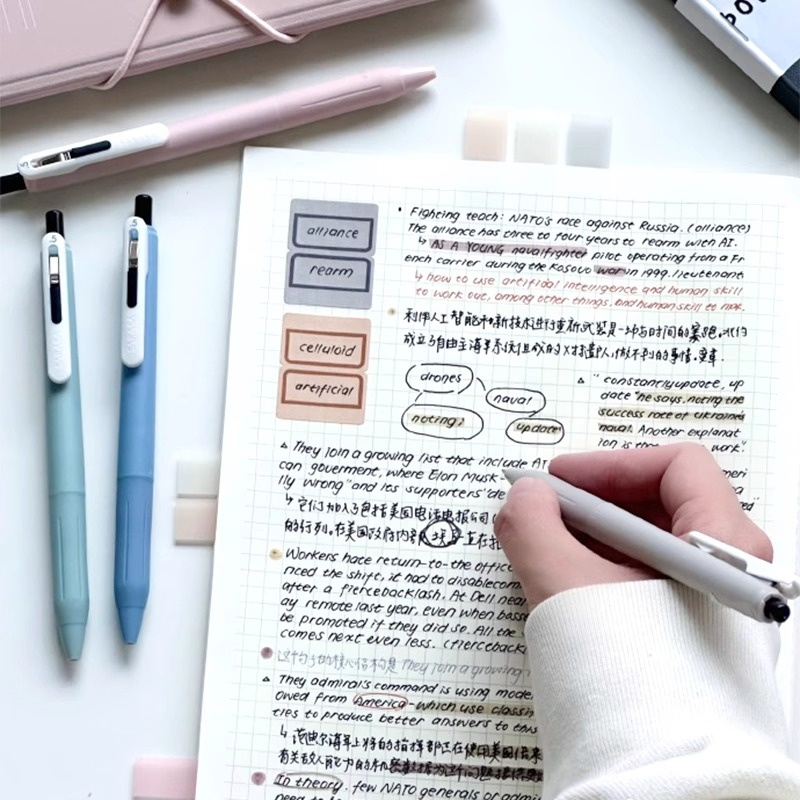 alliance
rearm
celluloid
artificial
• Fighting teach: NATO's race against Russia. (alliance)
The alliance has three to four years to rearm with AI.
↳ AS A YOUNG navalfighter pilot operating from a Fr
ench carrier during the Kosovo war in 1999. lieutenant
↳ how to use artificial intelligence and human skill
to work out, among other things, and human skill to
利用人工智能和新技术进行重新武装是一场与时间的赛跑。北约
drones
naval
noting,
update
▵ " constantly update, up
date "he says, noting the
success race of Ukraine's
naval. Another explanat
ion is work".
▵ They join a growing list that include AT
can goverment, where Elon Musk-
lly wrong" and his supporters' de
↳ 它们加入了包括美国电话电报公司
的行列。在美国政府内部 埃 一直在指
Workers hate return-to-the office
nced the shift, it had to disablecom
after a fiercebacklash. At Dell near
ay remote last year, even when
be promoted if they did so. All the
comes next even less. (fierceback
这个句子的核心结构是 They join a growing
▵ They admiral's command is using mode
owed from America-which use classin
ties to produce better answers to
↳ 范迪尔海军上将的指挥部正在使用美国借来
有关敌人能力的
In theory, few NATO generals or admir
need to
.5
.5
.5